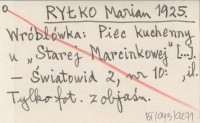 a
RYŁKO Marian 1925.
Wróblówka: Piec kuchenny
u „Starej Marcinkowej" [...].
– Światowid 2, nr 10: , il.
Tylko fot. z objaśn.